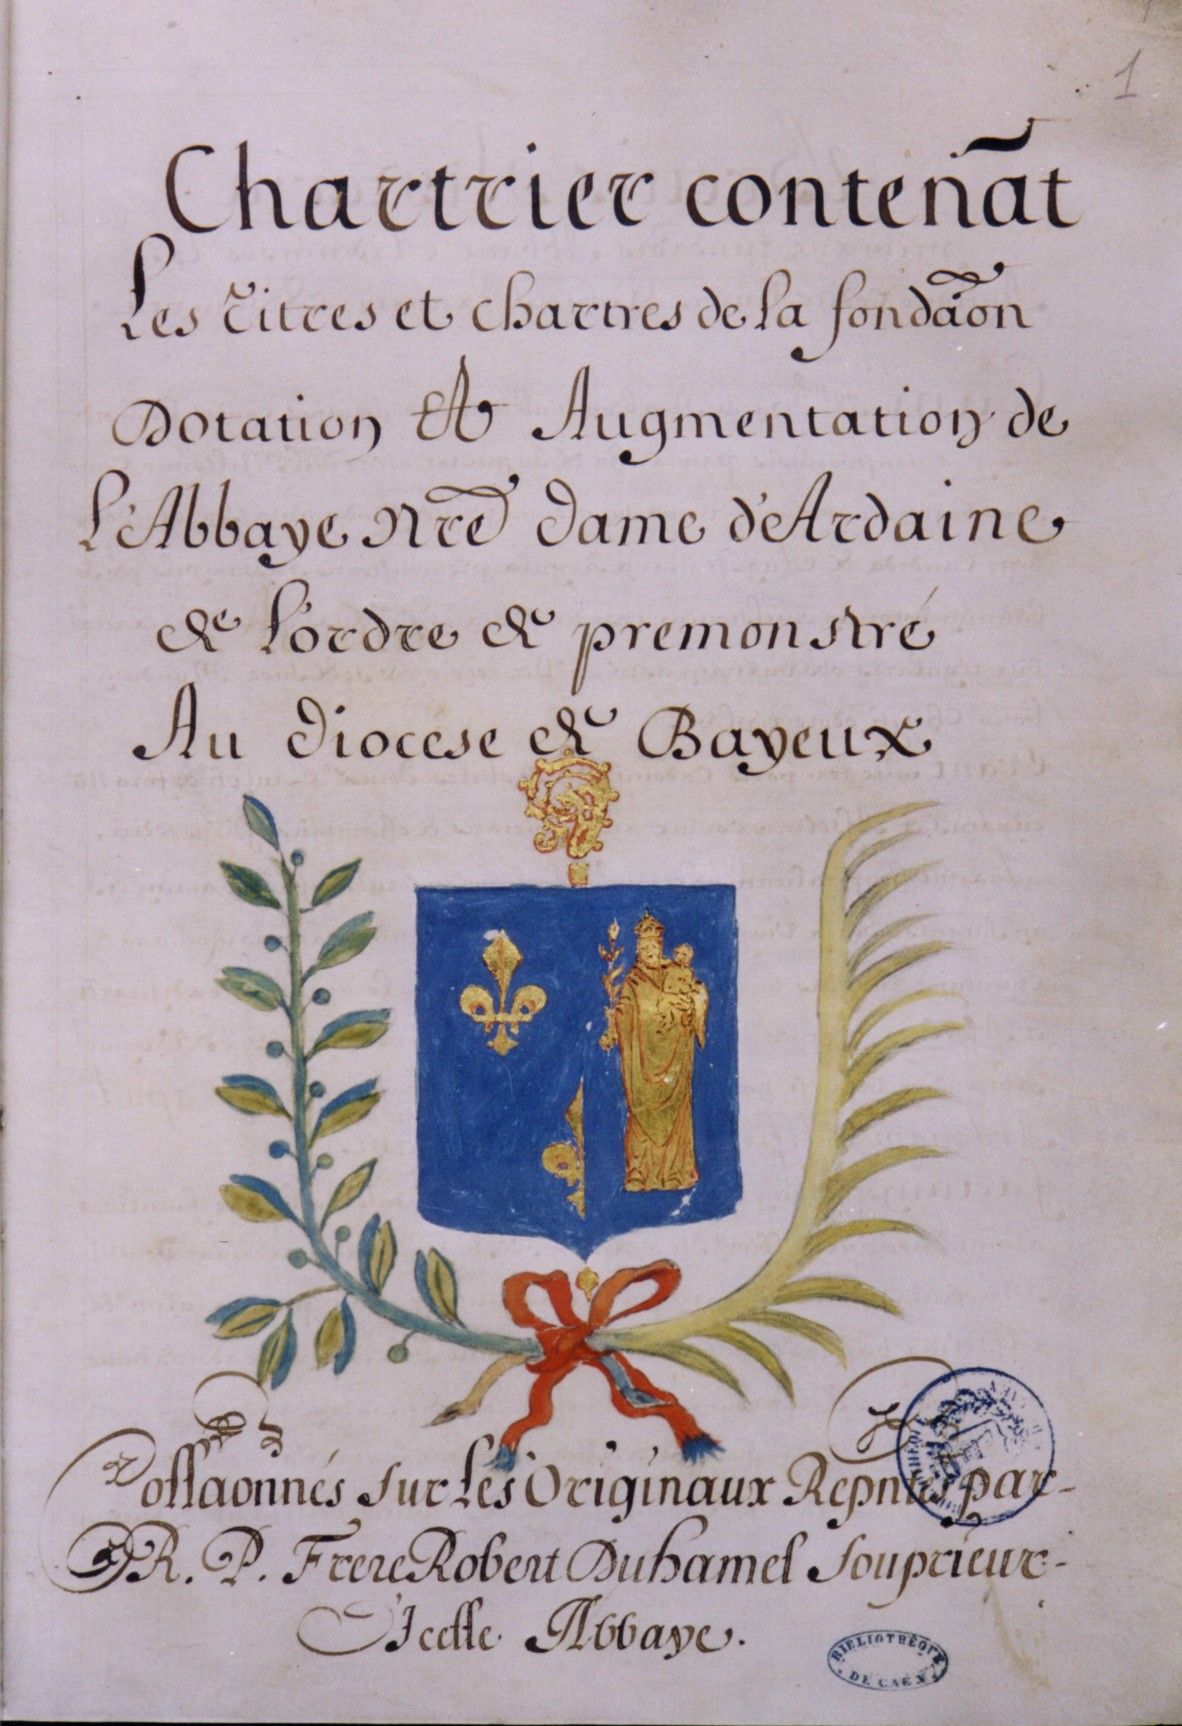 1
Chartrier conteñat
Les titres et chartres de la fondãon
Dotation Et Augmentation de
L'Abbaye Nr̃e Dame d'Ardaine
de L'ordre de premonstré
Au Diocese de Bayeux
Collaonnés sur Les Originaux Repntés par
R. P. Frere Robert Duhamel Souprieur
D'Icelle Abbaye.
BIBLIOTHÈQUE
DE CAEN